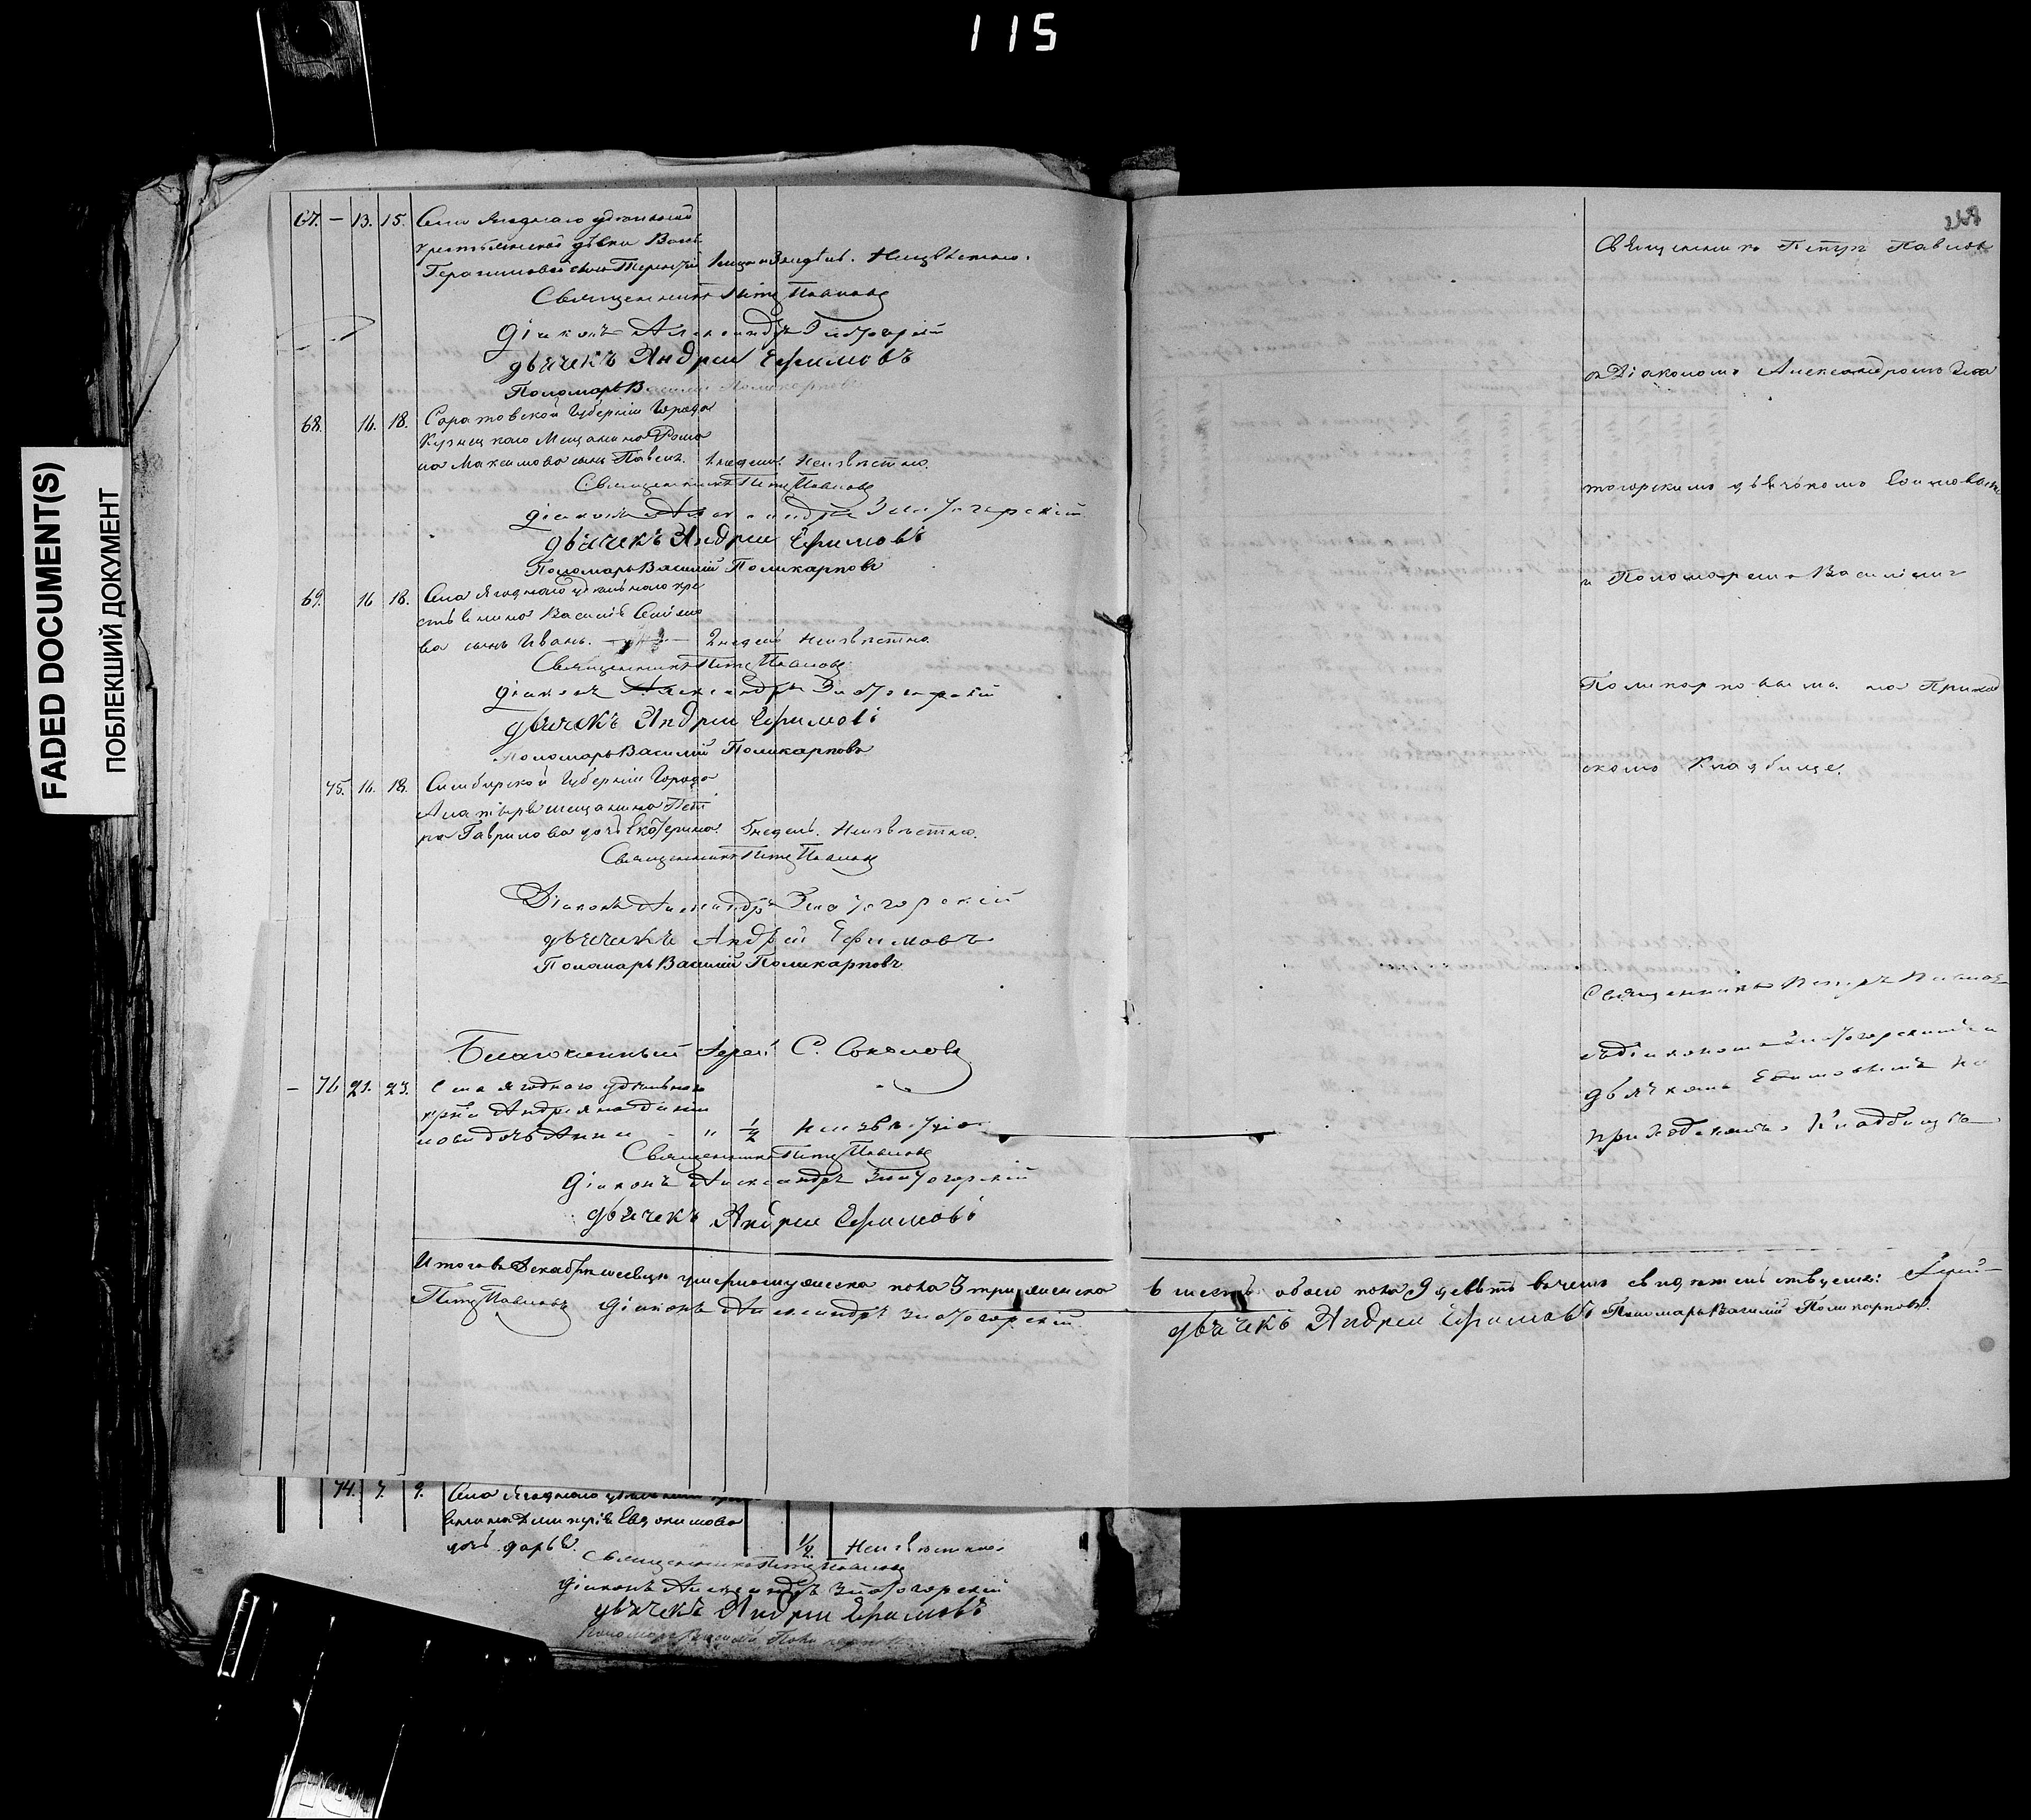 115
FADED DOCUMENT(S)
ПОБЛЕКШИЙ ДОКУМЕНТ
67. — 13. 15. Села Ягоднаго удельной
крестьянской девки
Герасимовой сынъ Терентій Неизвѣстно.
Священникъ Петръ Павловъ
Діаконъ Александръ Златогорскій
дьячекъ Андрей Ефимовъ
Пономарь Василий Поликарповъ
68. 16. 18. Саратовской Губерніи Города
Кузнецкаго Мещанина Рома
на Максимова сынъ Павелъ. недели. Неизвѣстно.
Священникъ Петръ Павловъ
діаконъ Александръ Златогорскій
дьячекъ Андрей Ефимовъ
Пономарь Василий Поликарповъ
69. 16 18. Села Ягоднаго удѣльнаго кре
стьянина Василія
ва сынъ Иванъ. 2 недели Неизвѣстно
Священникъ Петръ Павловъ
діаконъ Александръ Златогорскій
дьячекъ Андрей Ефимовъ
Пономарь Василий Поликарповъ
75. 16. 18. Симбирской Губерніи Города
Алатыря мещанина Пет
ра Гаврилова дочь Екатерина. недель. Неизвѣстно.
Священникъ Петръ Павловъ
Діаконъ Александръ Златогорскій
дьячекъ Андрей Ефимовъ
Пономарь Василий Поликарповъ
Благочинный Іерей С. Соколовъ
— 76 21. 23. Села Ягоднаго удѣльнаго
Андреяна Дани
лова дочь Анна " 1/2 Неизвѣстно
Священникъ Петръ Павловъ
Діаконъ Александръ Златогорскій
дьячекъ Андрей Ефимовъ
Итого въ Декабрѣ месяцѣ умерло мужеска пола 3 три женска
6 шесть обоего пола 9 девять въ чемъ свидѣтельствуемъ: Іерей
Петръ Павловъ Діаконъ Александръ Златогорскій
дьячекъ Андрей Ефимовъ Пономарь Василий Поликарповъ.
74. 7. 9. Села Ягоднаго
Димитрія Евдокимова
дочь Дарья. Неизвѣстно
Священникъ Петръ Павловъ
діаконъ Александръ Златогорскій
дьячекъ Андрей Ефимовъ
Пономарь Василий Поликарповъ
Священникъ Петръ Павловъ
съ Діакономъ Александромъ Зла
тогорскимъ дьячкомъ Ефимовымъ
и Пономаремъ Василіемъ
Поликарповымъ на Приход
скомъ Кладбище.
Священникъ Петръ Павловъ
съ діакономъ Златогорскимъ и
дьячкомъ Ефимовымъ на
приходскомъ Кладбищѣ